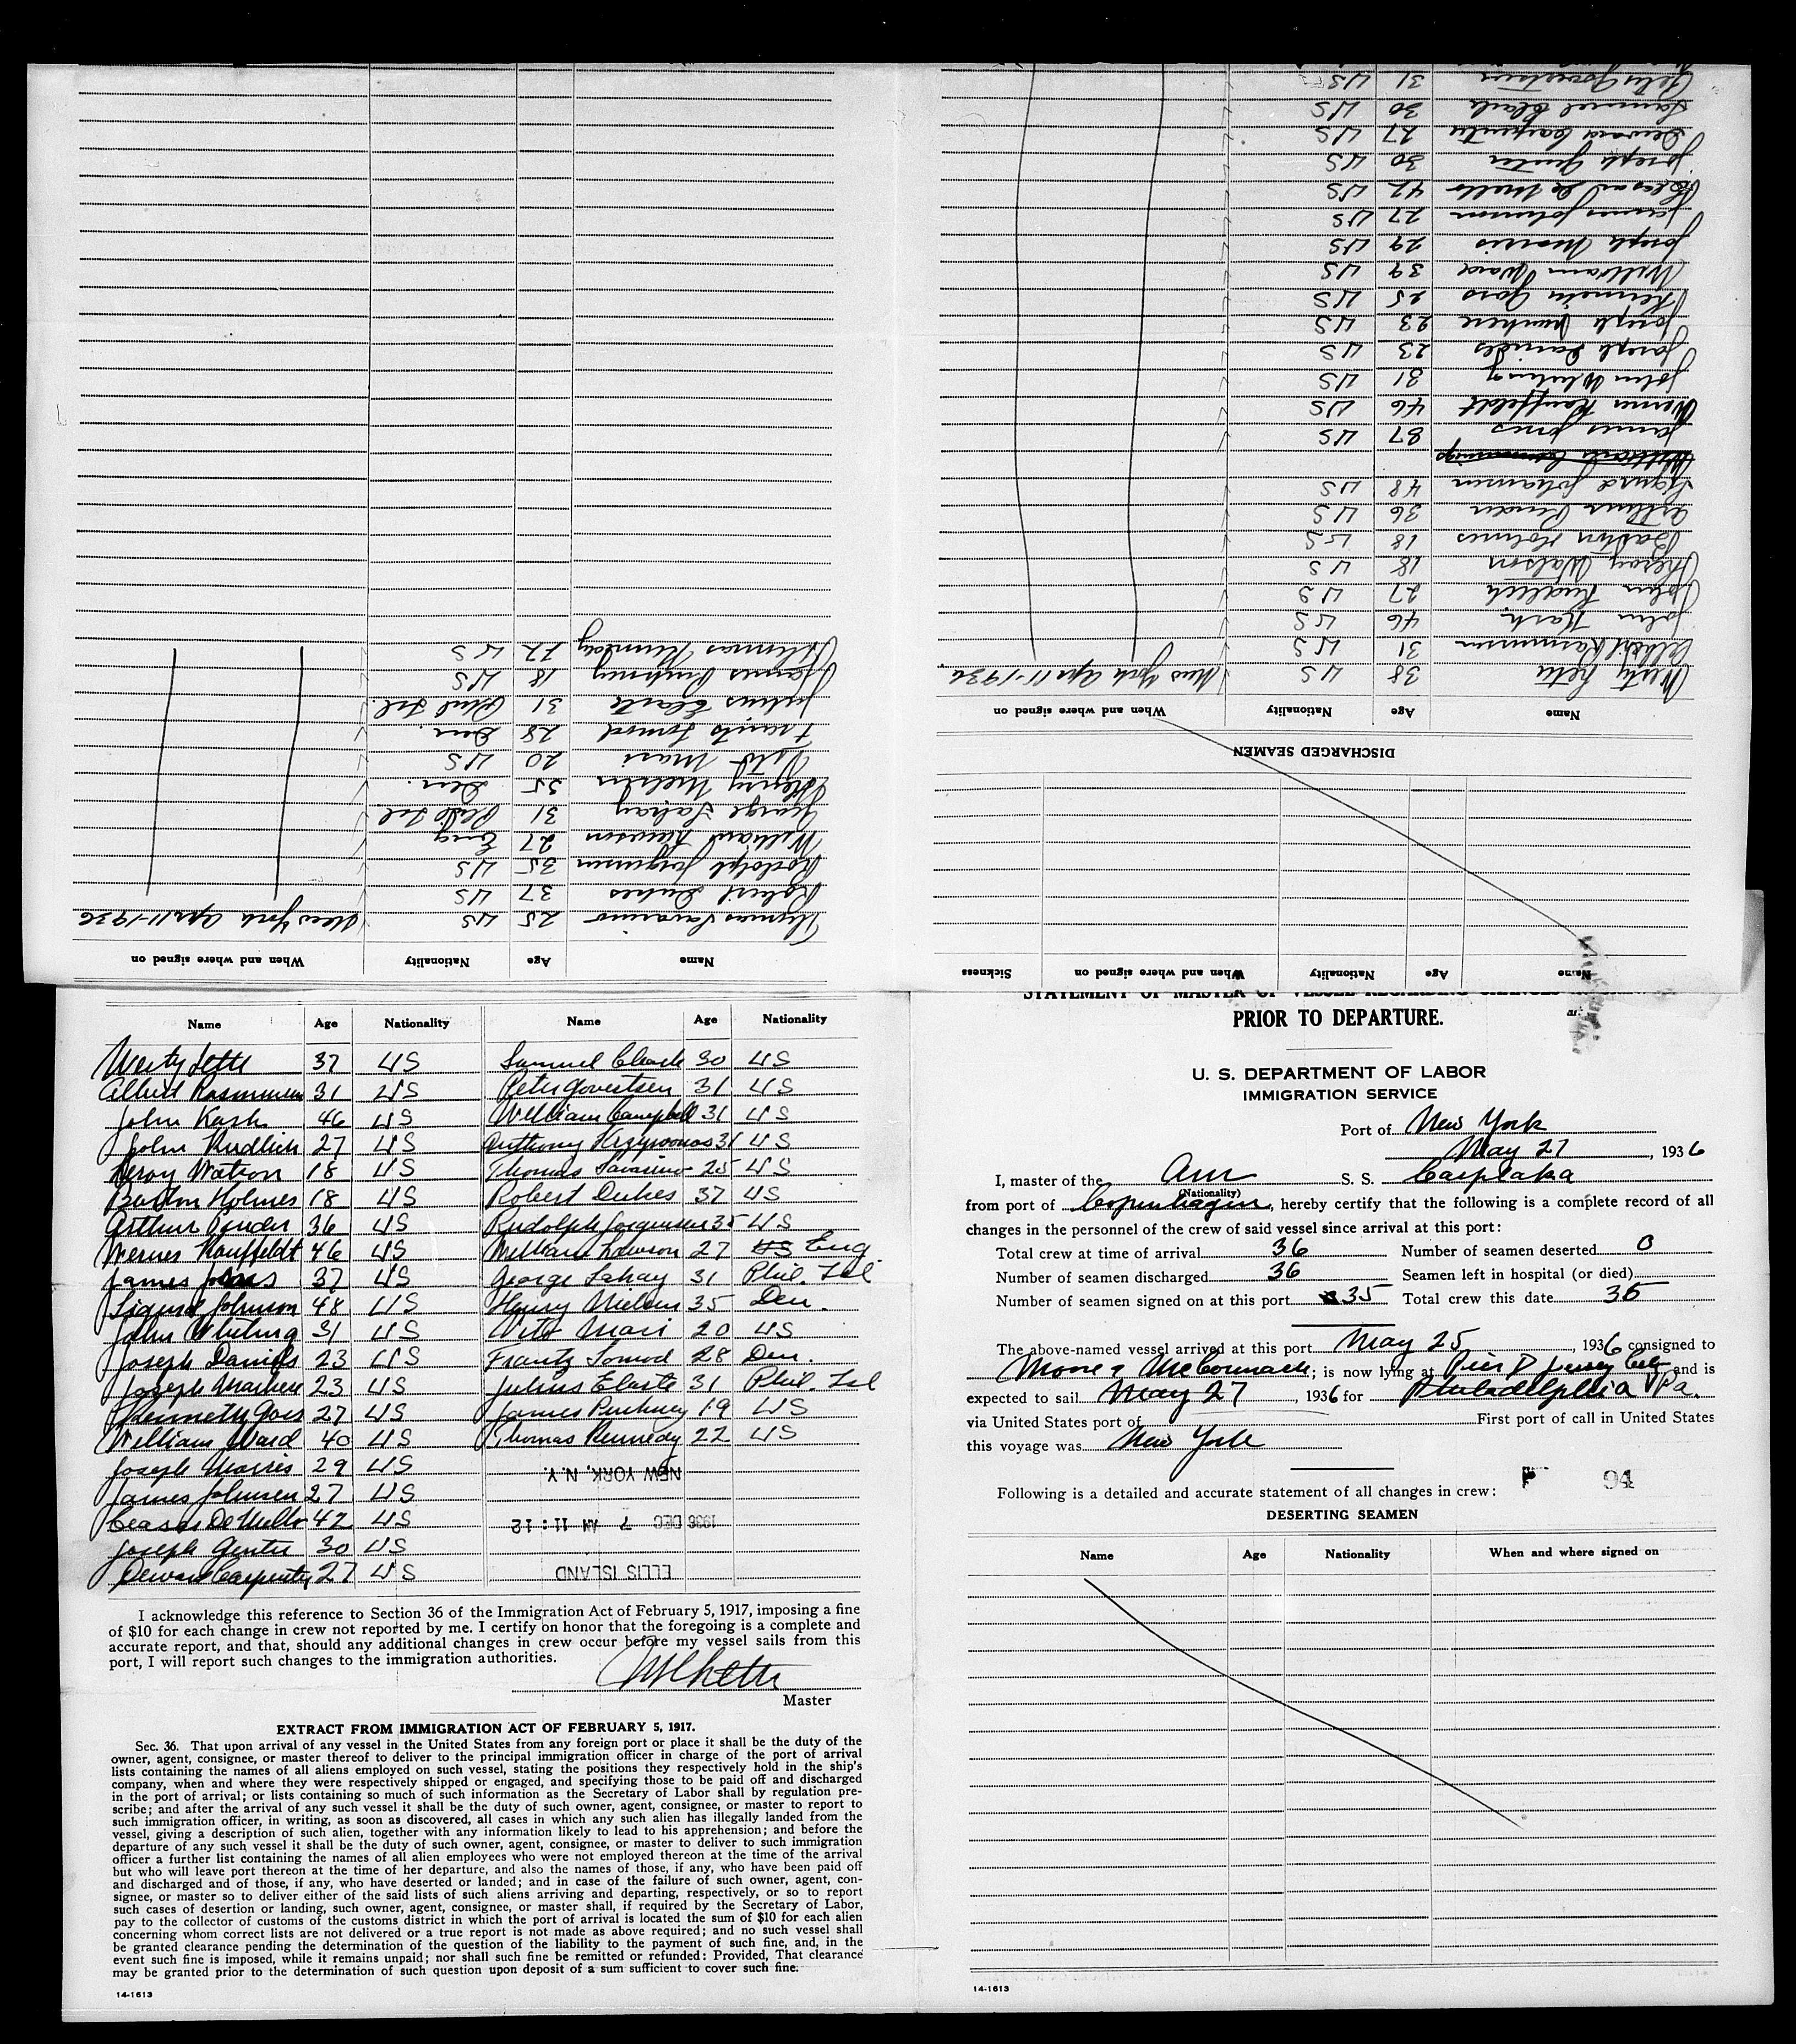 Name Age Nationality When and where signed on
Thomas Savarino 25 US New York Apr 11-1936
Robert Dukes 37 US
Rodolph Jorgensen 35 US
William Lawson 27 Eng
George Lahay 31 Phil Isl
Henry Nielsen 35 Den.
Vito Mari 20 US
Frantz Lomod 28 Den.
Julius Elarte 31 Phil Isl.
James Pinkney 18 US
Thomas Kennedy 22 US
Name Age Nationality When and where signed on Sickness
DISCHARGED SEAMEN
Name Age Nationality When and where signed on
38 US New York Apr 11-1936
Albert Rasmussen 31 US
John Kash 46 US
John Kudlich 27 US
Leroy Watson 18 US
Barton Holmes 18 US
Arthur Pender 36 US
Sigurd Johannsen 48 US
James Jones 37 US
Werner Kauffeldt 46 US
John Whiting 31 US
Joseph Daniels 23 US
Joseph 23 US
Kenneth Goss 25 US
William Ward 39 US
Joseph Morris 29 US
James Johnson 27 US
De Mello 42 US
Joseph Genter 30 US
Deward Carpenter 27 US
Samuel Clark 30 US
Peter Govertsen 31 US
Name Age Nationality Name Age Nationality
37 US Samuel Clark 30 US
Albert Rasmussen 31 US Peter Govertsen 31 US
John Kash 46 US William Campbell 31 US
John Kudlich 27 US Anthony 31 US
Leroy Watson 18 US Thomas Savarino 25 US
Barton Holmes 18 US Robert Dukes 37 US
Arthur Pender 36 US Rudolph Jorgensen 35 US
Werner Kauffeldt 46 US William Lawson 27 US Eng
James Jones 37 US George Lahay 31 Phil. Isl
Sigurd Johnson 48 US Henry Nielsen 35 Den.
John Whiting 31 US Vito Mari 20 US
Joseph Daniels 23 US Frantz Lomod 28 Den.
Joseph 23 US Julius Elarte 31 Phil. Isl
Kenneth Goss 27 US James Pinkney 19 US
William Ward 40 US Thomas Kennedy 22 US
Joseph Morris 29 US NEW YORK, N.Y.
James Johnson 27 US
Ceasar De Mello 42 US 1936 DEC 7 AM 11:12
Joseph Genter 30 US
Deward Carpenter 27 US ELLIS ISLAND
I acknowledge this reference to Section 36 of the Immigration Act of February 5, 1917, imposing a fine
of $10 for each change in crew not reported by me. I certify on honor that the foregoing is a complete and
accurate report, and that, should any additional changes in crew occur before my vessel sails from this
port, I will report such changes to the immigration authorities.
Master
EXTRACT FROM IMMIGRATION ACT OF FEBRUARY 5, 1917.
Sec. 36. That upon arrival of any vessel in the United States from any foreign port or place it shall be the duty of the
owner, agent, consignee, or master thereof to deliver to the principal immigration officer in charge of the port of arrival
lists containing the names of all aliens employed on such vessel, stating the positions they respectively hold in the ship's
company, when and where they were respectively shipped or engaged, and specifying those to be paid off and discharged
in the port of arrival; or lists containing so much of such information as the Secretary of Labor shall by regulation pre-
scribe; and after the arrival of any such vessel it shall be the duty of such owner, agent, consignee, or master to report to
such immigration officer, in writing, as soon as discovered, all cases in which any such alien has illegally landed from the
vessel, giving a description of such alien, together with any information likely to lead to his apprehension; and before the
departure of any such vessel it shall be the duty of such owner, agent, consignee, or master to deliver to such immigration
officer a further list containing the names of all alien employees who were not employed thereon at the time of the arrival
but who will leave port thereon at the time of her departure, and also the names of those, if any, who have been paid off
and discharged and of those, if any, who have deserted or landed; and in case of the failure of such owner, agent, con-
signee, or master so to deliver either of the said lists of such aliens arriving and departing, respectively, or so to report
such cases of desertion or landing, such owner, agent, consignee, or master shall, if required by the Secretary of Labor,
pay to the collector of customs of the customs district in which the port of arrival is located the sum of $10 for each alien
concerning whom correct lists are not delivered or a true report is not made as above required; and no such vessel shall
be granted clearance pending the determination of the question of the liability to the payment of such fine, and, in the
event such fine is imposed, while it remains unpaid; nor shall such fine be remitted or refunded: Provided, That clearance
may be granted prior to the determination of such question upon deposit of a sum sufficient to cover such fine.
14-1613
STATEMENT OF MASTER OF VESSEL REGARDING CHANGES
PRIOR TO DEPARTURE.
U. S. DEPARTMENT OF LABOR
IMMIGRATION SERVICE
Port of New York
May 27, 1936
I, master of the Am S. S. Carplaka
(Nationality)
from port of Copenhagen, hereby certify that the following is a complete record of all
changes in the personnel of the crew of said vessel since arrival at this port:
Total crew at time of arrival 36 Number of seamen deserted 0
Number of seamen discharged 36 Seamen left in hospital (or died)
Number of seamen signed on at this port 35 Total crew this date 35
The above-named vessel arrived at this port May 25, 1936 consigned to
Moore & McCormack; is now lying at Pier D Jersey City and is
expected to sail May 27, 1936 for Philadelphia Pa.
via United States port of First port of call in United States
this voyage was New York
F 94
Following is a detailed and accurate statement of all changes in crew:
DESERTING SEAMEN
Name Age Nationality When and where signed on
14-1613